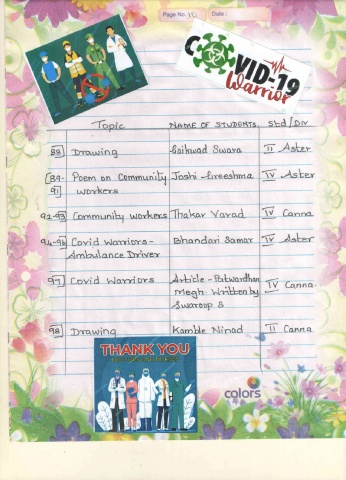 Page No. 10 Date:
COVID-19
Warrior
Topic NAME OF STUDENTS. Std/DIV
88 Drawing Gaikwad Swara II Aster
89-91 Poem on Community workers Joshi Greeshma IV Aster
92-93 Community workers Thakar Varad IV Canna
94-96 Covid Warriors- Ambulance Driver Bhandari Samar IV Aster
97 Covid Warriors Article - Patwardhan Megh. Written by Swaroop S IV Canna
98 Drawing Kamble Ninad II Canna
THANK YOU
colors